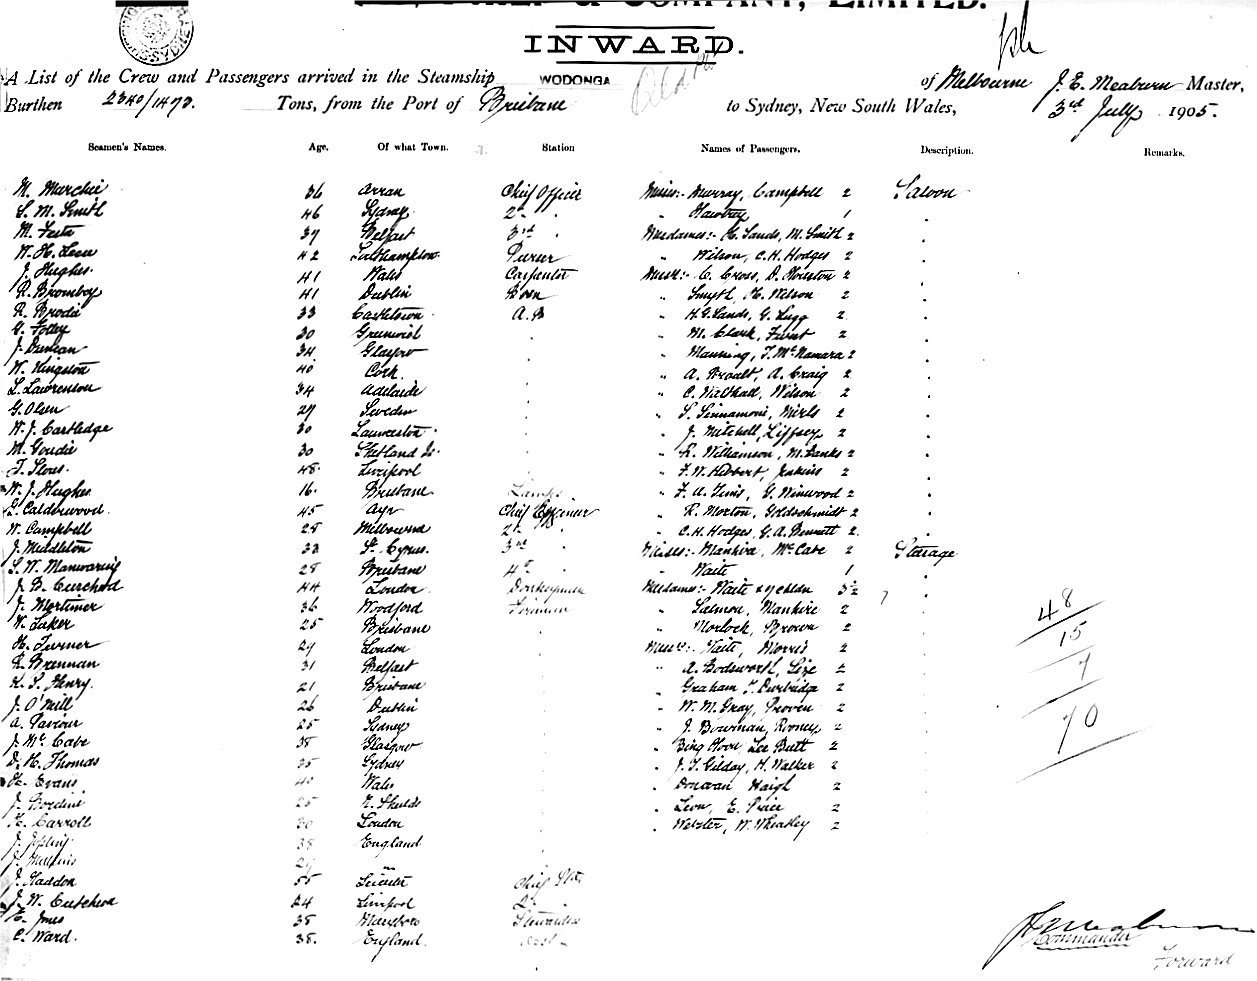 & COMPANY, LIMITED.
INWARD.
A List of the Crew and Passengers arrived in the Steamship WODONGA of Melbourne J. E. Meaburn Master,
Burthen 2340/1473. Tons, from the Port of Brisbane to Sydney, New South Wales, 3rd July 1905.
Seamen's Names. Age. Of what Town. Station Names of Passengers. Description. Remarks.
M. Murchie 36 Arran Chief Officer Misses:- Murray, Campbell 2 Saloon
S. M. Smith 46 Sydney 2nd " Hawtrey 1
M. 37 Belfast 3rd Mesdames:- H. Sands, M. Smith 2
W. H. 42 Southampton Purser " Wilson, C. H. Hodges 2
J. Hughes 41 Wales Carpenter Messr:- C. Cross, D. Houston 2
R. Bromboy 41 Dublin Bosn " Smyth, H. Nelson 2
R. Brodie 33 Castletown A.B " H. G. Sands, G. Lugg 2
G. Foley 30 Greenwich " M. Clark, Furst 2
J. Duncan 34 Glasgow " Manning, T. McNamara 2
W. Kingston 40 Cork " A. A. Craig 2
L. Lawrenson 34 Adelaide " C. Walthall, Wilson 2
G. Olsen 27 Sweden " S. Sinnamoni, 2
W. J. Cartledge 30 Launceston " J. Mitchell, Liffsey 2
M. Goudie 30 Shetland Is. " R. Williamson, M. Banks 2
T. 48 Liverpool " F. W. Hibbert, Jenkins 2
W. J. Hughes 16 Brisbane Lamps " F. A. G. Winwood 2
Calderwood 45 Ayr Chief Engineer " R. Morton, Goldschmidt 2
W. Campbell 28 Melbourne 2nd " C. H. Hodges, G. A. Bennett 2
J. Middleton 33 St. Cyrus 3rd Misses:- Mankive, McCabe 2 Steerage
S. W. Manwaring 28 Brisbane 4th " Waite 1
J. B. Curchod 44 London Donkeyman Mesdames:- Waite & 7 chldn 3½
J. Mortimer 36 Woodford Fireman " Salmon, Mankive 2
W. 25 Brisbane " Morlock, Brown 2
H. Turner 29 London Messr:- Waite, Morris 2
R. Brennan 31 Belfast " A. Bodsworth, 2
K. S. Henry 21 Brisbane " Graham, T. Durbridge 2
J. O'Neill 26 Dublin " W. M. Gray, Proven 2
A. Paviour 25 Sydney " J. Bowman, Rooney 2
J. McCabe 38 Glasgow " Bing Hoon, Lee Butt 2
D. H. Thomas 35 Sydney " J. T. Gilday, H. Walker 2
H. Evans 40 Wales " Donovan Haigh 2
J. 25 N. Shields " Leon, E. Price 2
H. Carroll 30 London " Webster, W. Wheatley 2
J. 38 England
J. 29 "
J. Haddon 55 Leicester Chief Std.
J. W. Cutcheon 24 Liverpool 2nd
E. Jones 38 Maryboro Stewardess
C. Ward. 38. England
48
15
7
70
Commander
Forward